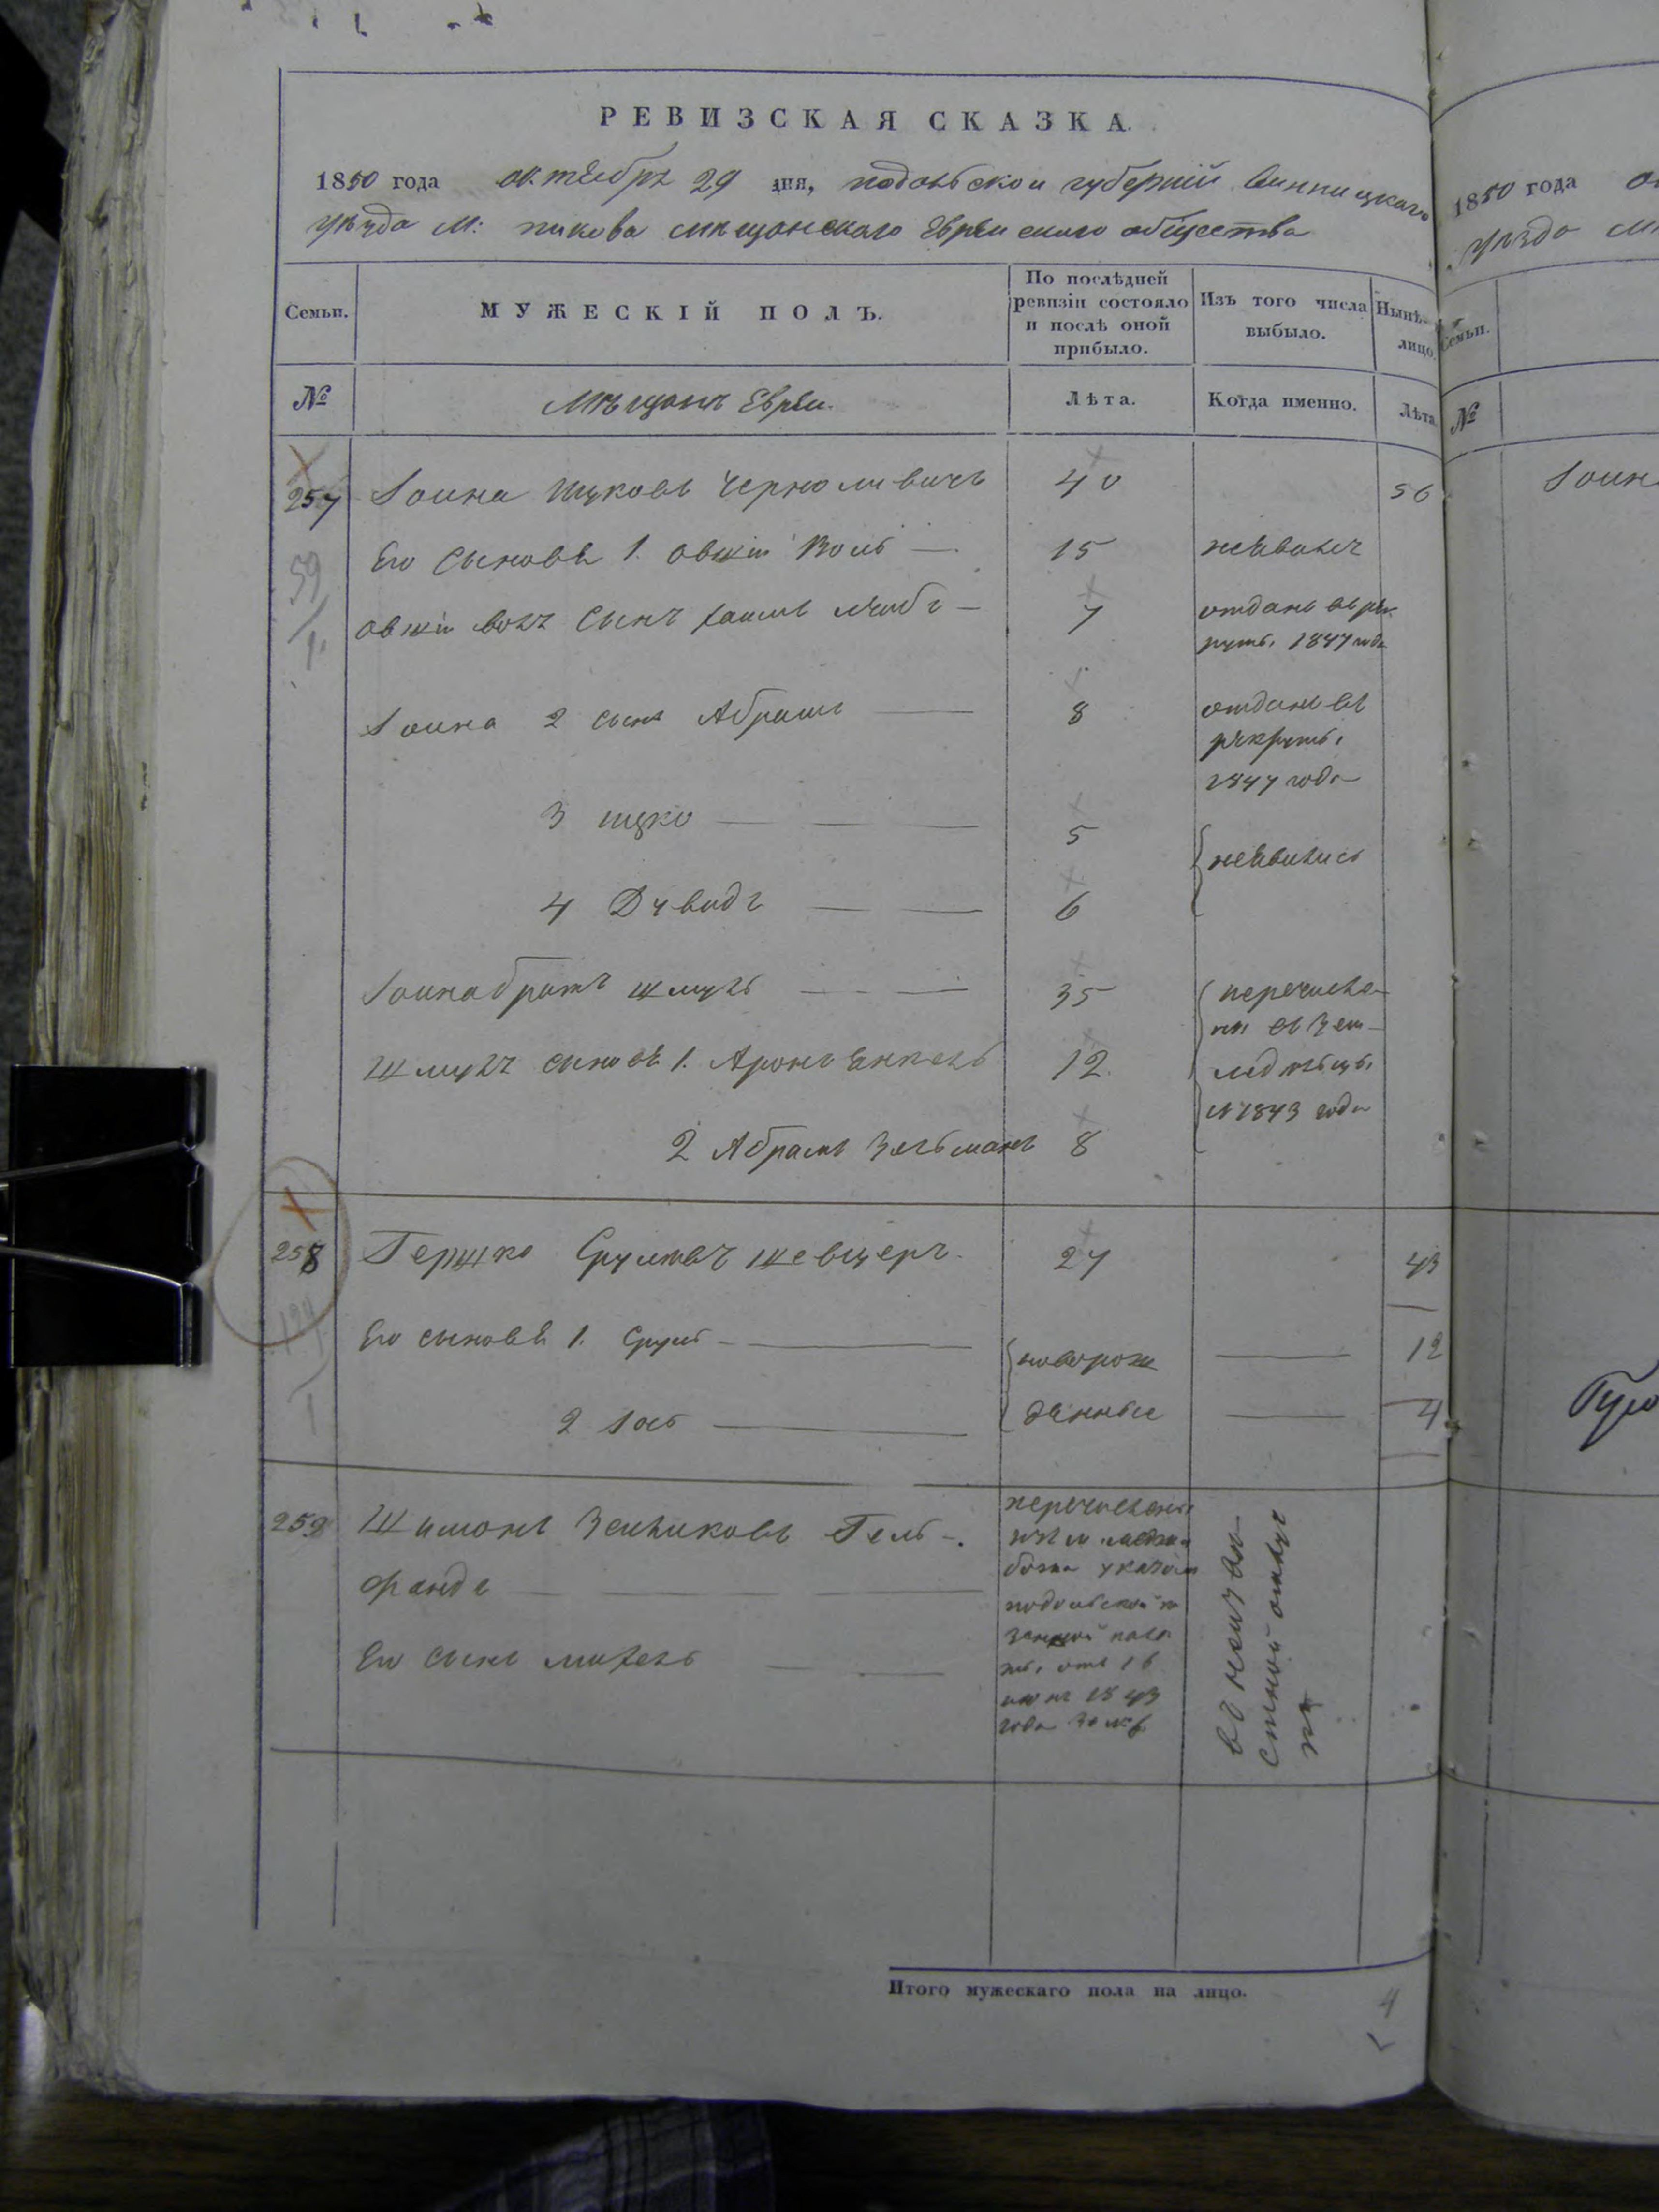 РЕВИЗСКАЯ СКАЗКА.
1850 года октября 29 дня, подольской губерніи Винницкаго
уѣзда М: пикова мѣщанскаго Еврейскаго общества
Семьи. МУЖЕСКІЙ ПОЛЪ. По послѣдней ревизіи состояло и послѣ оной прибыло. Изъ того числа выбыло. Нынѣ лицо.
№ Мѣщане Евреи. Лѣта. Когда именно. Лѣта
257 Іоина Ицковъ 40 56
59 Его Сыновья 1. Овшій Воль 15 неявился
1. Овшія воля Сынъ Хаимъ Лейбъ 7 отданъ въ рек
руты 1847 года
Іоина 2 сынъ Абрамъ 8 отданъ въ
рекруты
1847 года
3 ицко 5
неявились
4 Дувидъ 6
Іоина братъ шмуль 35 перечисле
ны въ Зем
Шмуля сыновья 1. Аронъ Янкель 12 ледѣльцы
1843 года
2 Абрамъ Зельманъ 8
258 Гершко Срулевъ шевцеръ 27 43
Его сыновья 1. Сруль 12
новорож
денные
2 Іось 4
259 Шимонъ Зейликовъ Гель
фандъ
Его сынъ михель
перечислены
указом
подольской ка
зенной пала
ты отъ 16
1843
года за № 6
Итого мужескаго пола на лицо. 4
1850 года
уѣзда
Семьи.
№
Іоина